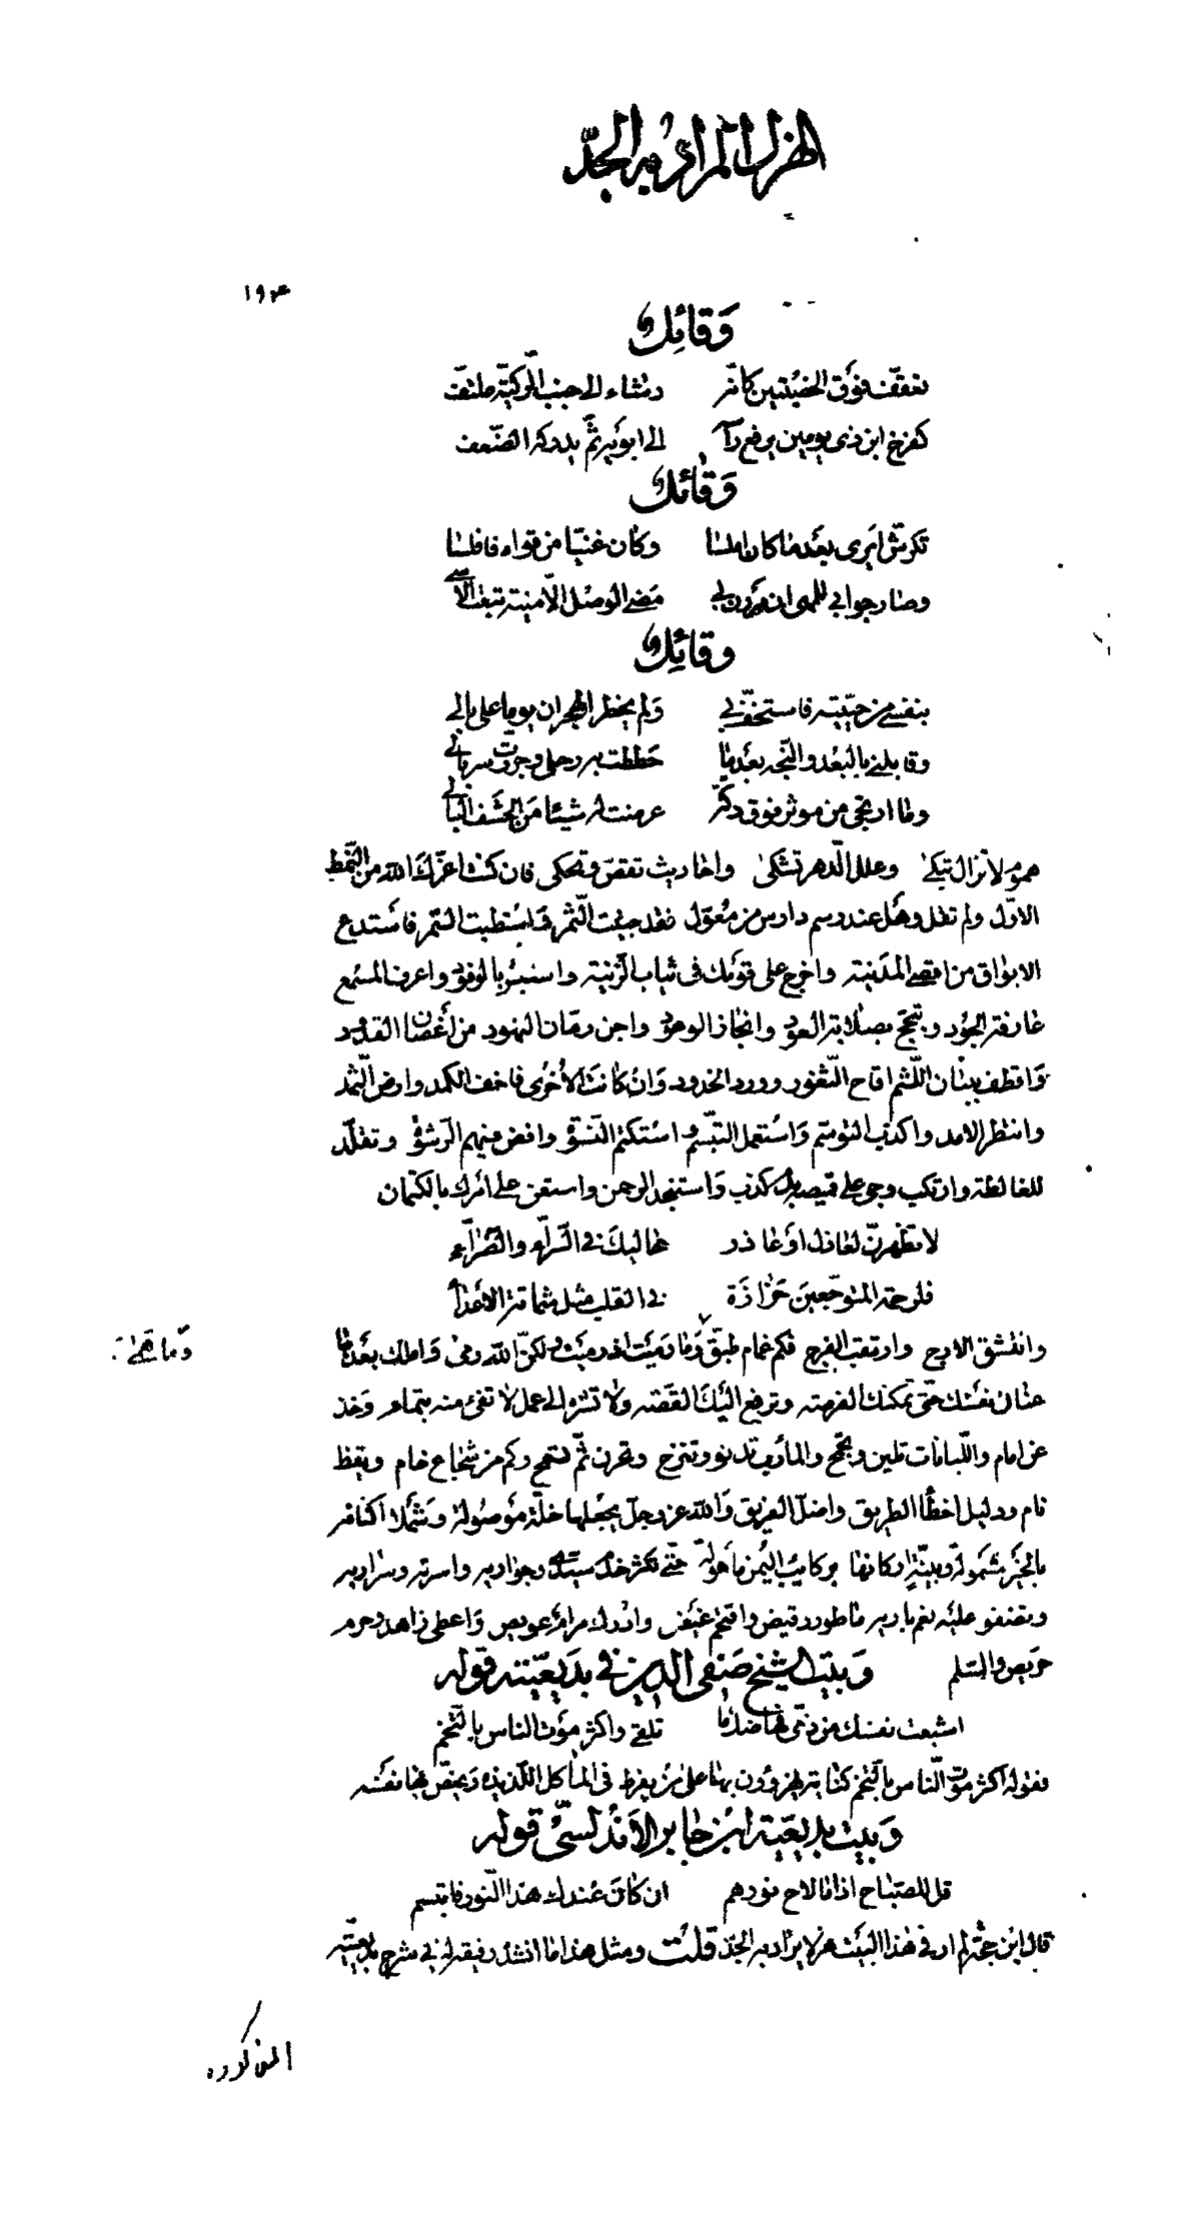 الهزل المراد به الجد
١٩٣
وقائل
تعقف فوق الخصيتين كانه رشاء الى جنب الركية ملتف
كفرخ ابن ذى يومين يرفع راسه الى ابويه ثم يدركه الضعف
وقائل
تكرش ايرى بعدما كان املسا وكان غنيا من قواه فافلسا
وصار جوابى للمهى ان مررن بى مضى الوصل الا منية تبعث الاسى
وقائل
بنفسى من حييته فاستخف بى ولم يخطر الهجران يوما على بالى
وقابلنى بالبعد والنجه بعدما حططت به رحلى وجردت سربالى
وما ارتجى من موثر فوق دكة عرضت له شيئا من الحشف البالى
هموم لا تزال تبكى وعلل الدهر تشكى واحاديث تقص وتحكى فان كنت اعزك الله من النمط
الاول ولم تقل وهل عند رسم دارس من معول فقد جنيت الثمر واستطبت السمر فاستدع
الابواق من اقصى المدينة واخرج على قومك فى ثياب الزينة واستبشر بالوفود واعرف المسمع
عارفة الجود وتبجح بصلابة العود وانجاز الوعود واجن رمان النهود من اغصان القدود
واقطف ببنان اللثم اقاح الثغور وورد الخدود وان كانت الاخرى فاخف الكمد وارض الثمد
وانتظر الامد واكذب التوسم واستعمل التبسم واستكتم النسوة وافض فيهم الرشوة وتقلد
المغالطة وارتكب وجئ على قميصه بدم كذب واستنجد الرحمن واستعن على امرك بالكتمان
لا تظهرن لعاذل او عاذر حاليك فى السراء والضراء
فلرحمة المتوجعين حزازة فى القلب مثل شماتة الاعداء
وانتشق الارج وارتقب الفرج فكم غمام طبق وما همى وما رميت اذ رميت ولكن الله رمى واملك بعدها
عنان نفسك حتى تمكنك الفرصة وترفع اليك القصة ولا تشره الى عمل لا تفئ منه بتمام وخذ
عن امام واللبانات تلين وتجمح والمأرب تدنو وتنزح وتحرن ثم تسمح وكم من شجاع خام ويقظ
نام ودليل اخطأ الطريق واضل الفريق والله عز وجل يجعلها خلة موصولة وشملا اكنافه
بالخير مشمولة وبنية اركانها بركايب اليمن ماهولة حتى تكثر خدم سيدى وجواريه واسرته وسراريه
وتضفو عليه نعم باريه ما طورد قنيص واقتحم عيص وادرك مرام عويص واعطى زاهد وحرم
حريص والسلم وبيت الشيخ صفى الدين فى بديعيته قوله
اشبعت نفسك من ذمى فهاضك ما تلقى واكثر موت الناس بالتخم
فقوله اكثر موت الناس بالتخم كناية يهزؤون بها على من يفرط فى المأكل اللذيذة ويخص بها نفسه
وبيت بديعية ابن جابر الاندلسى قوله
قل للصباح اذا ما لاح نورهم ان كان عندك هذا النور فابتسم
قال ابن حجة لم ار فى هذا البيت هزلا يراد به الجد قلت ومثل هذا ما انشد رفيقه له فى شرح بديعيته
المذكورة